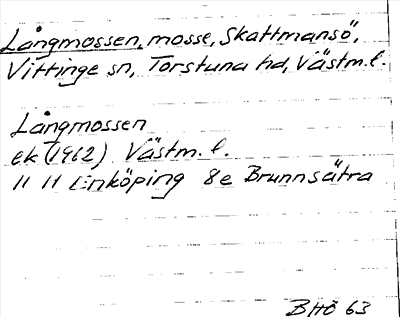 Långmossen, mosse, Skattmansö,
Vittinge sn, Torstuna hd, Västm.l.
Långmossen
ek (1962) Västm.l.
" " Enköping 8e Brunnsätra
BHÖ 63